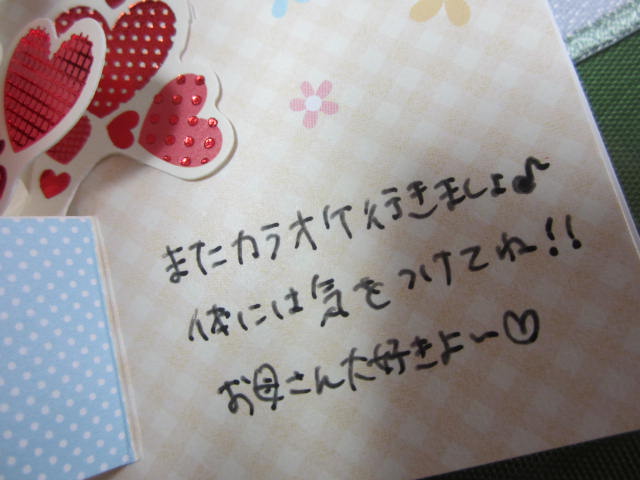 またカラオケ行きましょ♪
体には気をつけてね!!
お母さん大好きよ〜♡